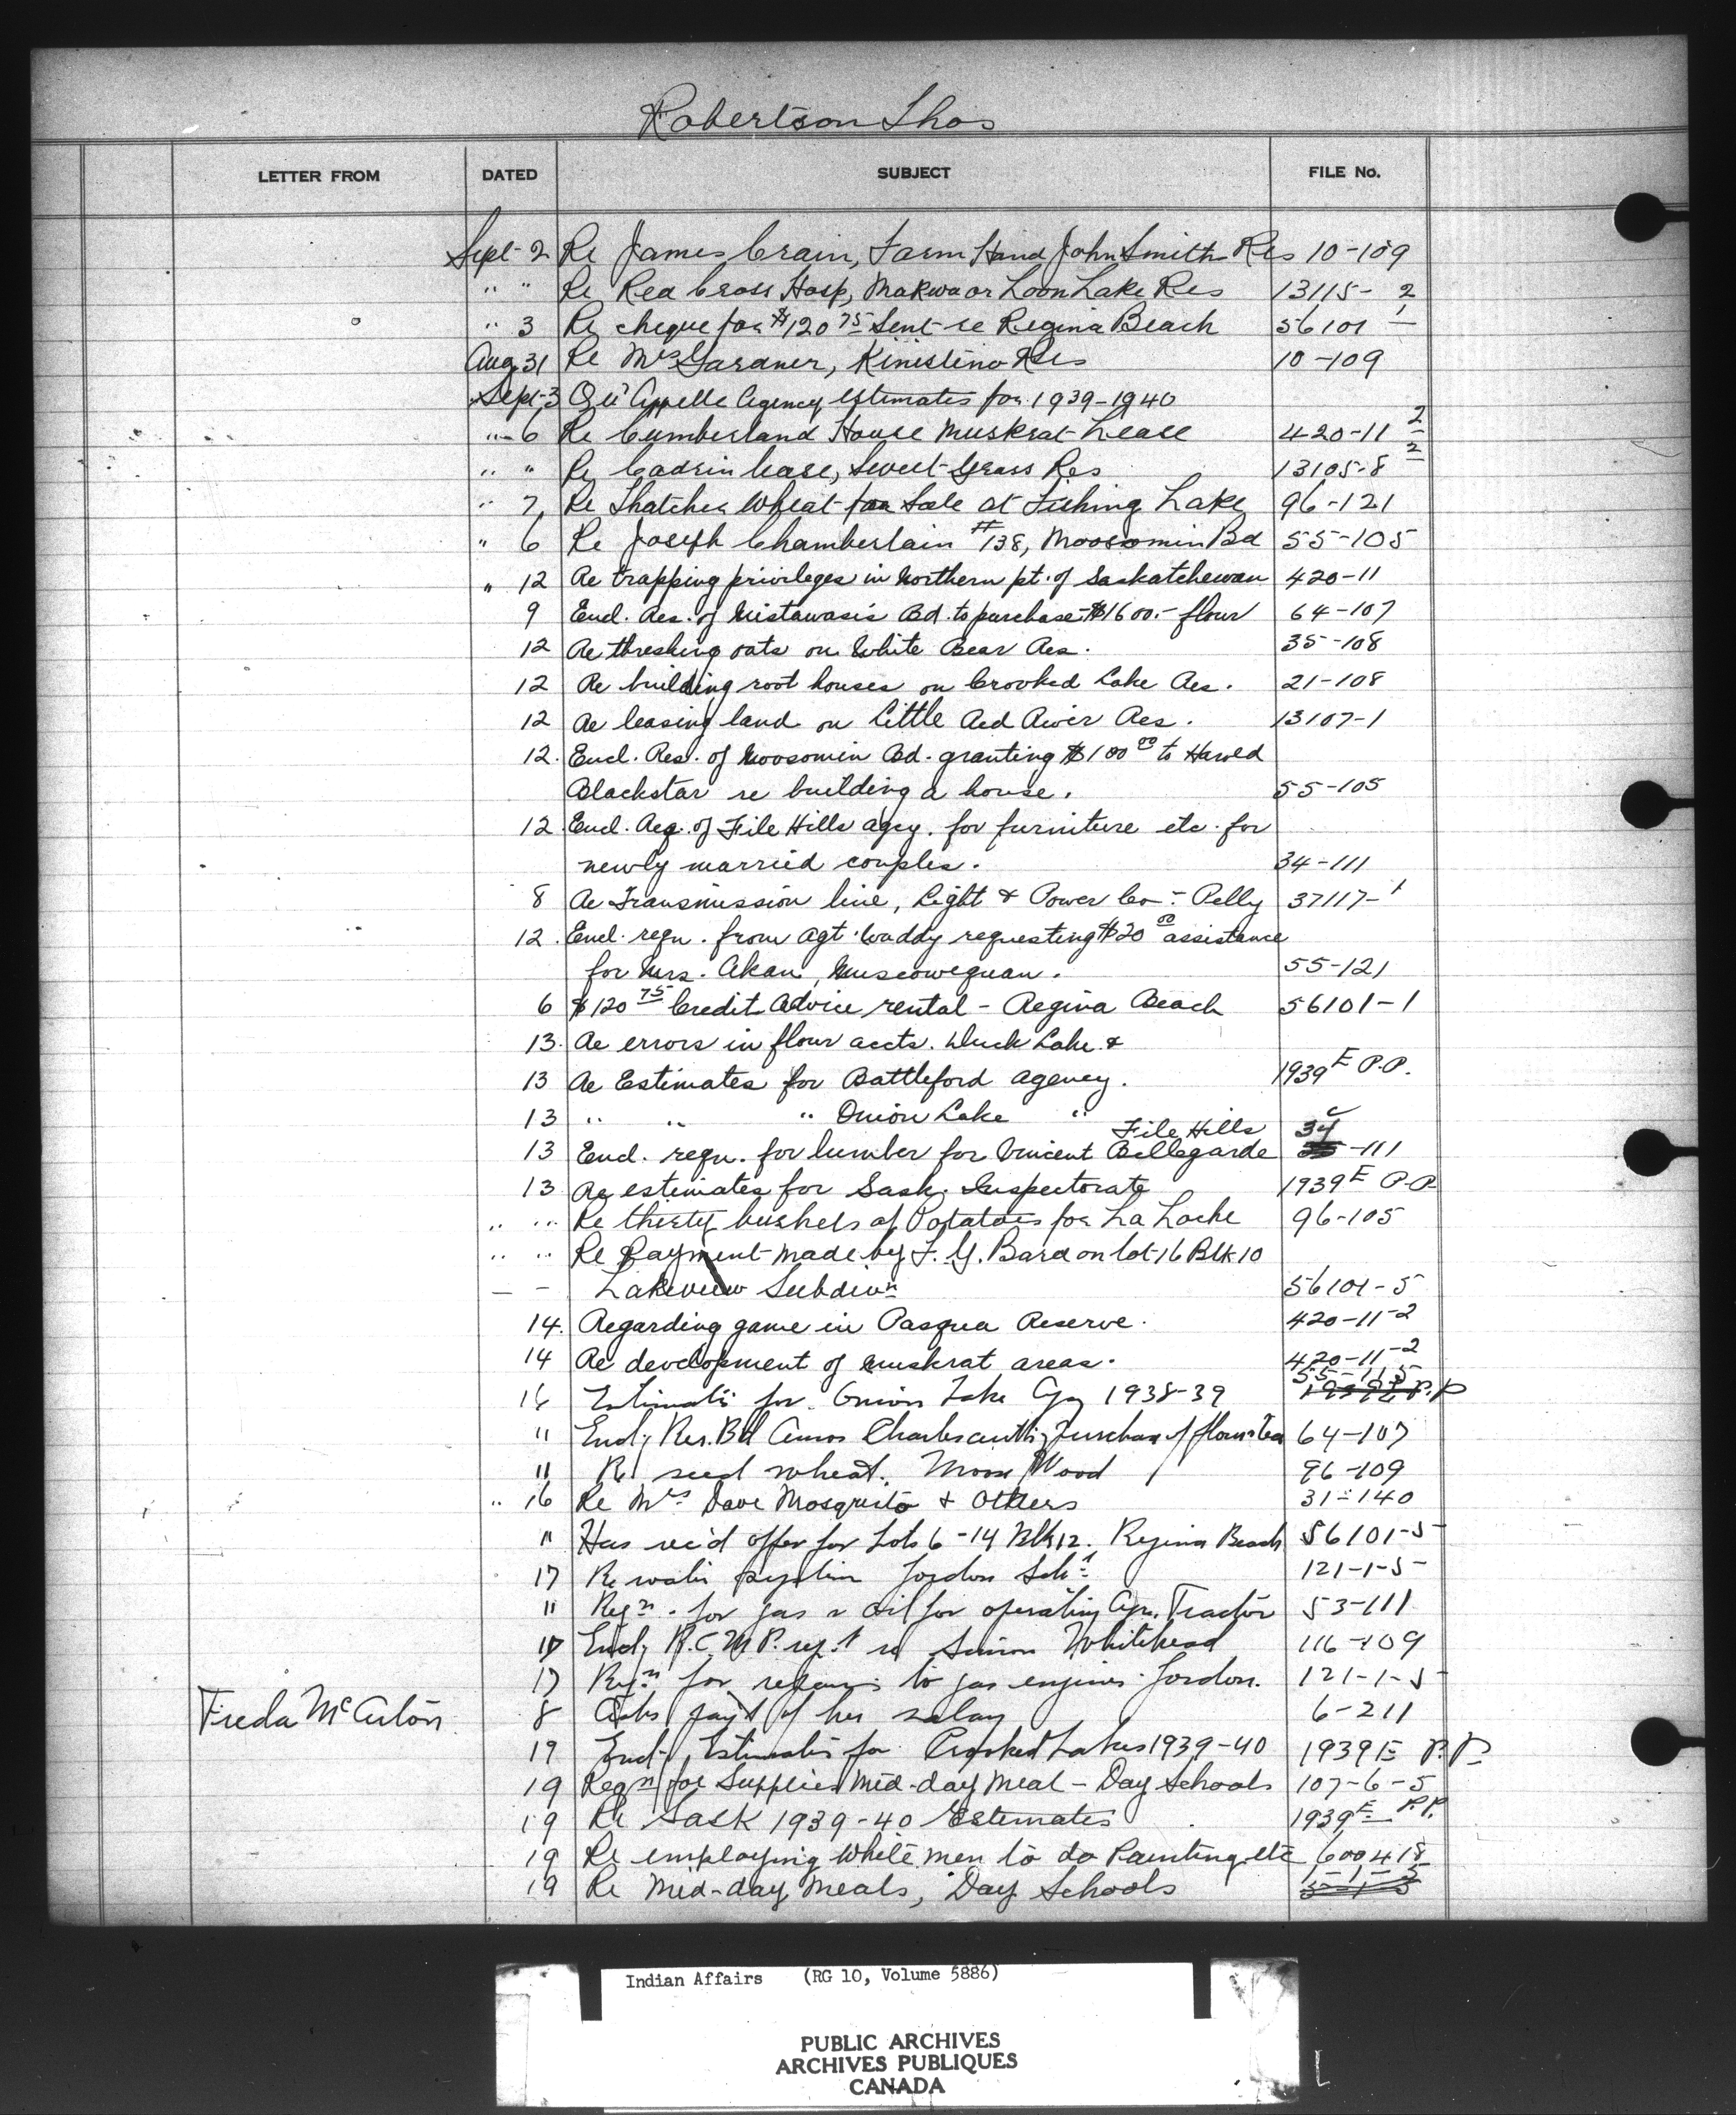 Robertson Thos
LETTER FROM DATED SUBJECT FILE No.
Sept-2 Re James Crain, Farm Hand John Smith Res 10-109
" " Re Red Cross Hosp, Makwa or Loon Lake Res 13115-2
" 3 Re cheque for $120 75 Sent re Regina Beach 56101-1
Aug 31 Re Mrs Gardner, Kinistino Res 10-109
Sept-3 Qu'Appelle Agency estimates for 1939-1940
" 6 Re Cumberland House Muskrat Lease 420-11-2
" " Re Cadrin lease, Sweet Grass Res 13105-8-2
" 7 Re Thatcher Wheat for Sale at Fishing Lake 96-121
" 6 Re Joseph Chamberlain #138, Moosomin Bd 55-105
" 12 Re trapping privileges in Northern pt. of Saskatchewan 420-11
9 Encl. Res. of Mistawasis Bd. to purchase $1600.- flour 64-107
12 Re threshing oats on White Bear Res. 35-108
12 Re building root houses on Crooked Lake Res. 21-108
12 Re leasing land on Little Red River Res. 13107-1
12. Encl. Res. of Moosomin Bd. granting $100 00 to Harold
Blackstar re building a house. 55-105
12. Encl. Req. of File Hills agcy. for furniture etc. for
newly married couples. 34-111
8 Re Transmission line, Light & Power Co - Pelly 37117-1
12. Encl. reqn. from Agt. Waddy requesting $20 00 assistance
for Mrs. Akan, Muscowequan. 55-121
6 $120 75 Credit Advice rental - Regina Beach 56101-1
13. Re errors in flour accts. Duck Lake &
13 Re Estimates for Battleford Agency. 1939 E P.P.
13 " " " Onion Lake "
File Hills
13 Encl. reqn. for lumber for Vincent Bellegarde 34-111
13 Re estimates for Sask. Inspectorate 1939 E P.P.
" " Re thirty bushels of Potatoes for La Loche 96-105
" " Re Payment made by F. G. Bard on lot 16 Blk 10
- - Lakeview Subdivn 56101-5
14. Regarding game in Pasqua Reserve. 420-11-2
14 Re development of muskrat areas. 420-11-2
55-115
16 Estimates for Onion Lake Agy 1938-39 P.P
" Encl. Res. Bd Amos Charles authg Purchase of flour & tea 64-107
" Re seed wheat. Moose Wood 96-109
" 16 Re Mrs Dave Mosquito & Others 31-140
" Has rec'd offer for Lots 6-14 Blk 12. Regina Beach 56101-5
17 Re water system Gordon Schl 121-1-5
" Reqn. for gas & oil for operating Agy. Tractor 53-111
17 Encl. R.C.M.P. rept re Simon Whitehead 116-109
17 Reqn for repairs to gas engines Gordon. 121-1-5
Freda McArton 8 Asks pay't of her salary 6-211
19 Encl. Estimates for Crooked Lakes 1939-40 1939 E P.P.
19 Reqn for Supplies Mid-day Meal - Day Schools 107-6-5
19 Re Sask 1939-40 Estimates 1939 E P.P.
19 Re employing White men to do Painting etc 600418
19 Re Mid-day Meals, Day Schools
Indian Affairs (RG 10, Volume 5886)
PUBLIC ARCHIVES
ARCHIVES PUBLIQUES
CANADA